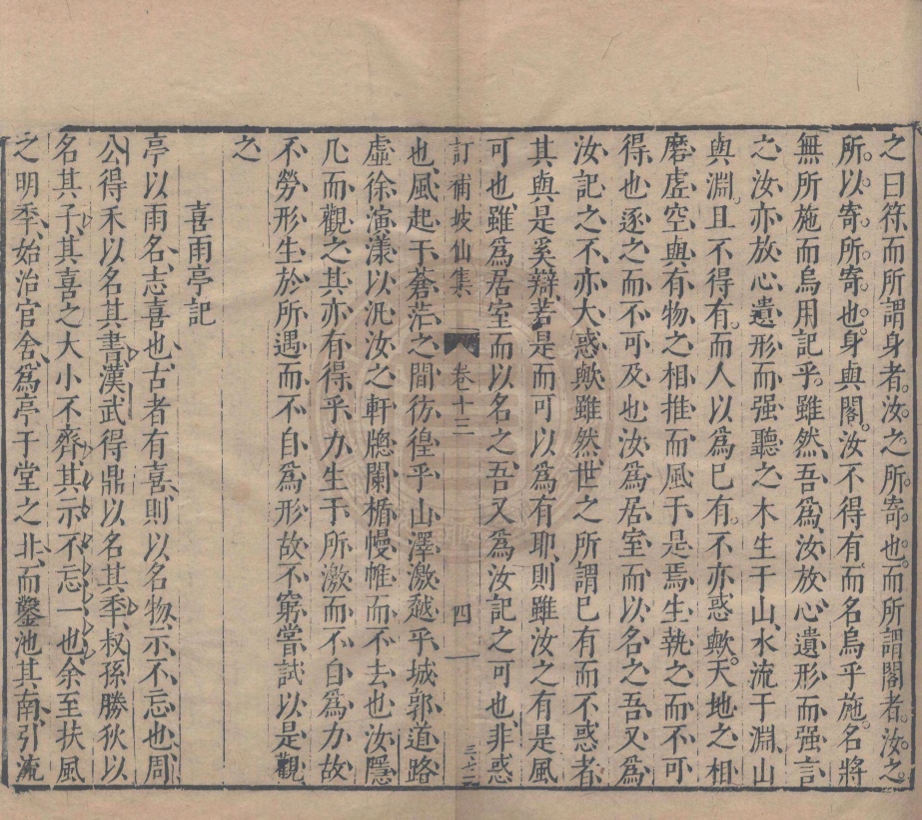 之曰符而所謂身者汝之所寄也而所謂閣者汝之
所以寄所寄也身與閣汝不得有而名烏乎施名將
無所施而烏用記乎雖然吾爲汝放心遺形而强言
之汝亦放心遺形而强聽之木生于山水流于淵山
與淵且不得有而人以爲已有不亦惑歟天地之相
磨虛空與有物之相推而風于是焉生執之而不可
得也逐之而不可及也汝爲居室而以名之吾又爲
汝記之不亦大惑歟雖然世之所謂已有而不惑者
其與是奚辯若是而可以爲有耶則雖汝之有是風
可也雖爲居室而以名之吾又爲汝記之可也非惑
訂補坡仙集 卷十三 四
也風起于蒼茫之間彷徨乎山澤激越乎城郭道路
虛徐演漾以汎汝之軒牕闌楯幔帷而不去也汝隱
几而觀之其亦有得乎力生于所激而不自爲力故
不勞形生於所遇而不自爲形故不窮嘗試以是觀
之
喜雨亭記
亭以雨名志喜也古者有喜則以名物示不忘也周
公得禾以名其書漢武得鼎以名其季叔孫勝狄以
名其子其喜之大小不齊其示不忘一也余至扶風
之明季始治官舍爲亭于堂之北而鑿池其南引流